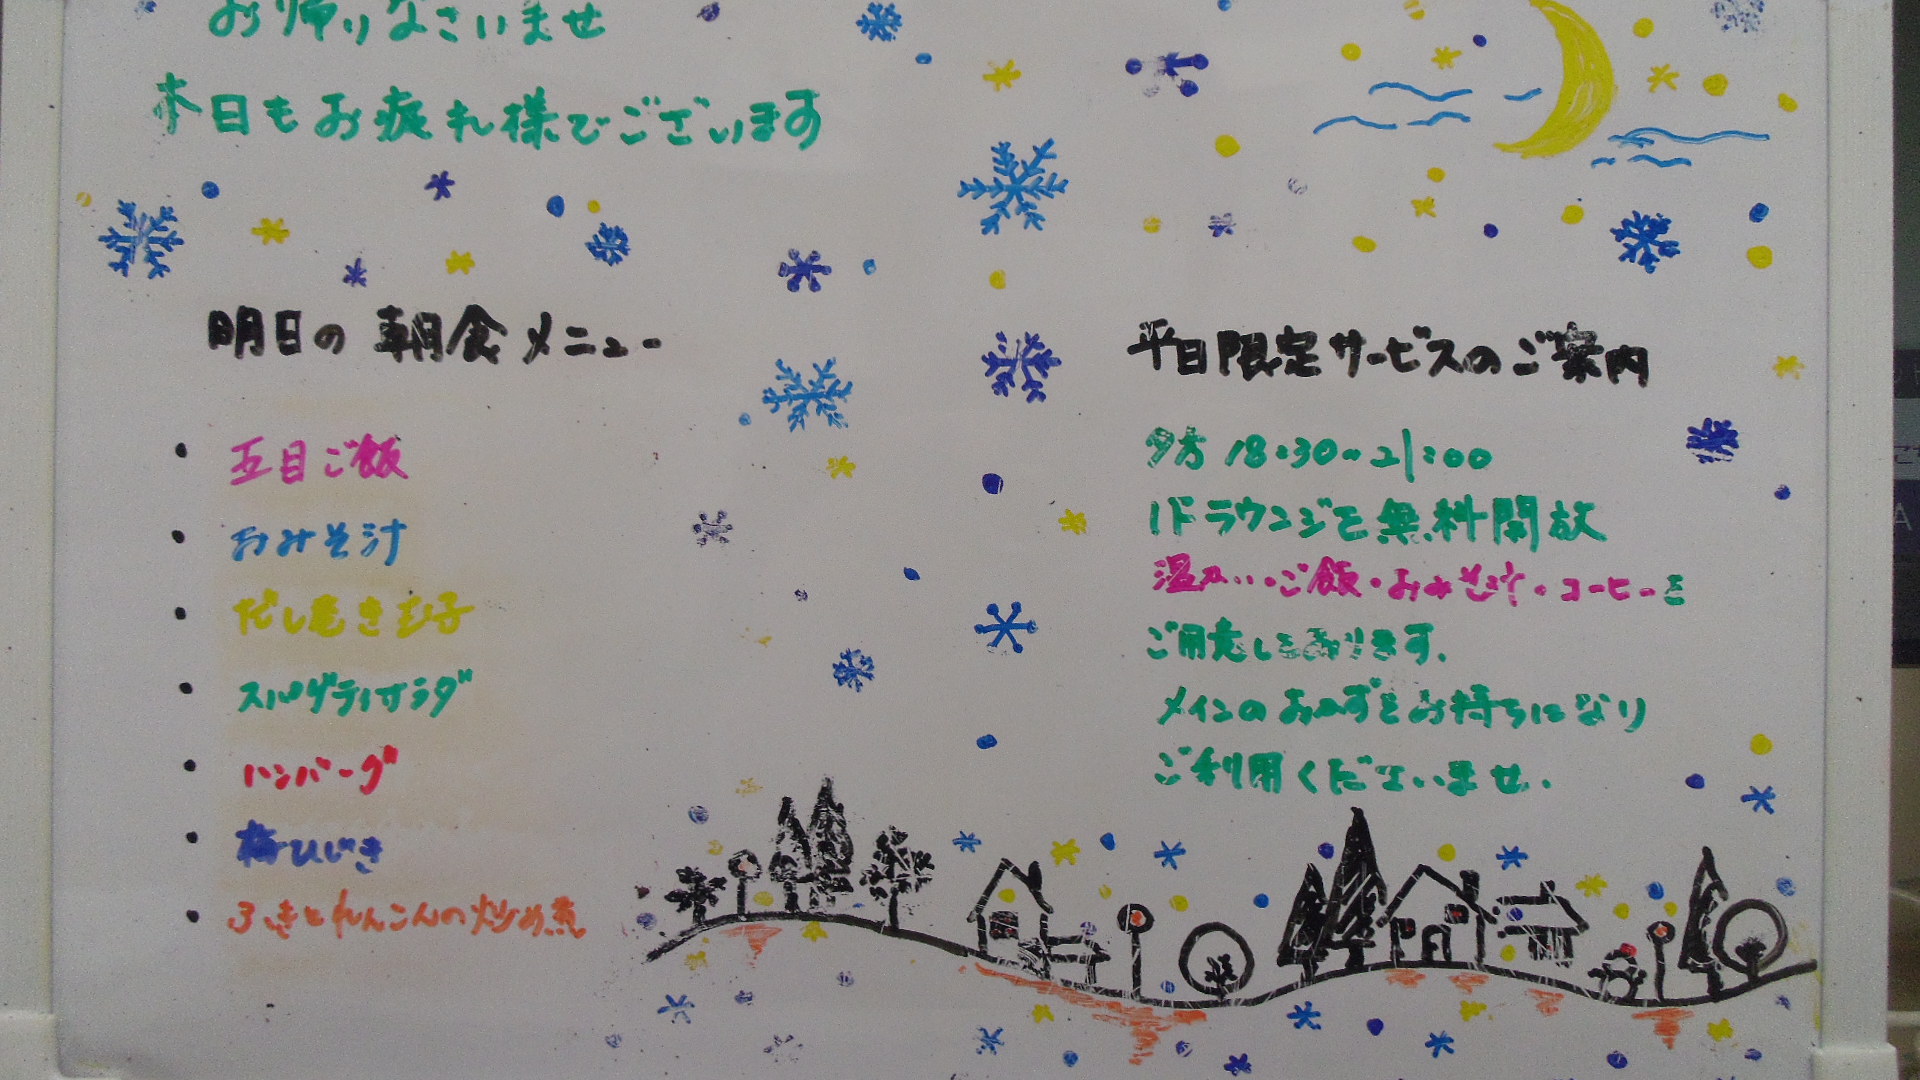 お帰りなさいませ
本日もお疲れ様でございます
明日の朝食メニュー
・五目ご飯
・おみそ汁
・だし巻き玉子
・スパゲティサラダ
・ハンバーグ
・梅ひじき
・ふきとれんこんの炒め煮
平日限定サービスのご案内
夕方 18:30~21:00
1Fラウンジを無料開放
温かい・ご飯・おみそ汁・コーヒーを
ご用意しております。
メインのおかずをお持ちになり
ご利用くださいませ。